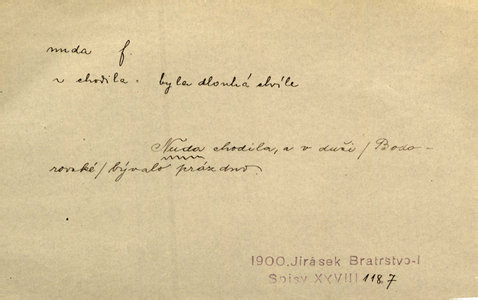 nuda f.
n chodila = byla dlouhá chvíle
Nuda chodila, a v duši / Bodo-
rovské / bývalo prázdno.
1900. Jirásek Bratrstvo-I
Spisy XXVIII 1187